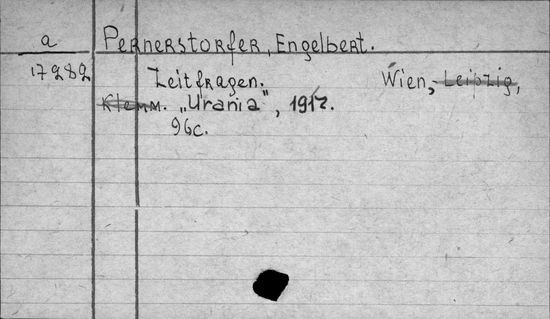 a Pernerstorfer, Engelbert.
17282 Zeitfragen. Wien, Leipzig,
Klemm. „Urania“, 1917.
96c.